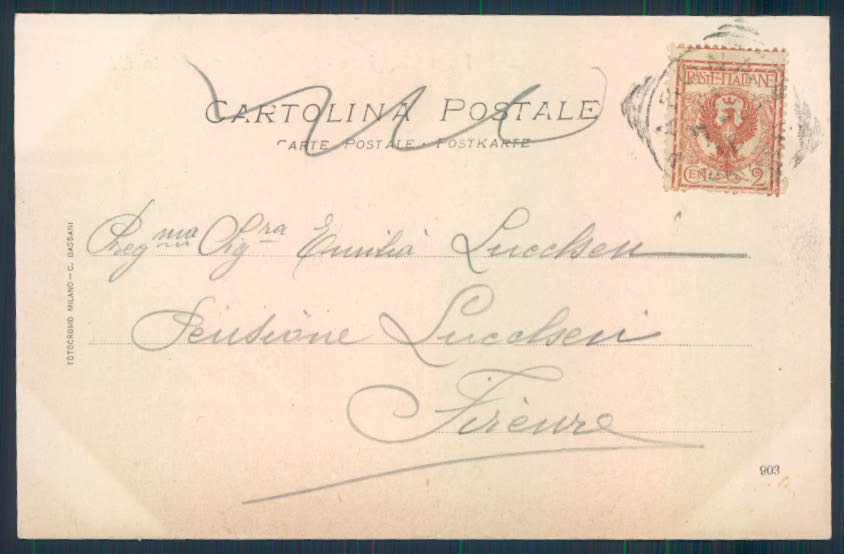 CARTOLINA POSTALE
CARTE POSTALE - POSTKARTE
POSTE ITALIANE
CEN 2
Preg.ma Sig.ra Emilia Lucchesi
Pensione Lucchesi
Firenze
FOTOCROMO MILANO - C. BASSANI
903